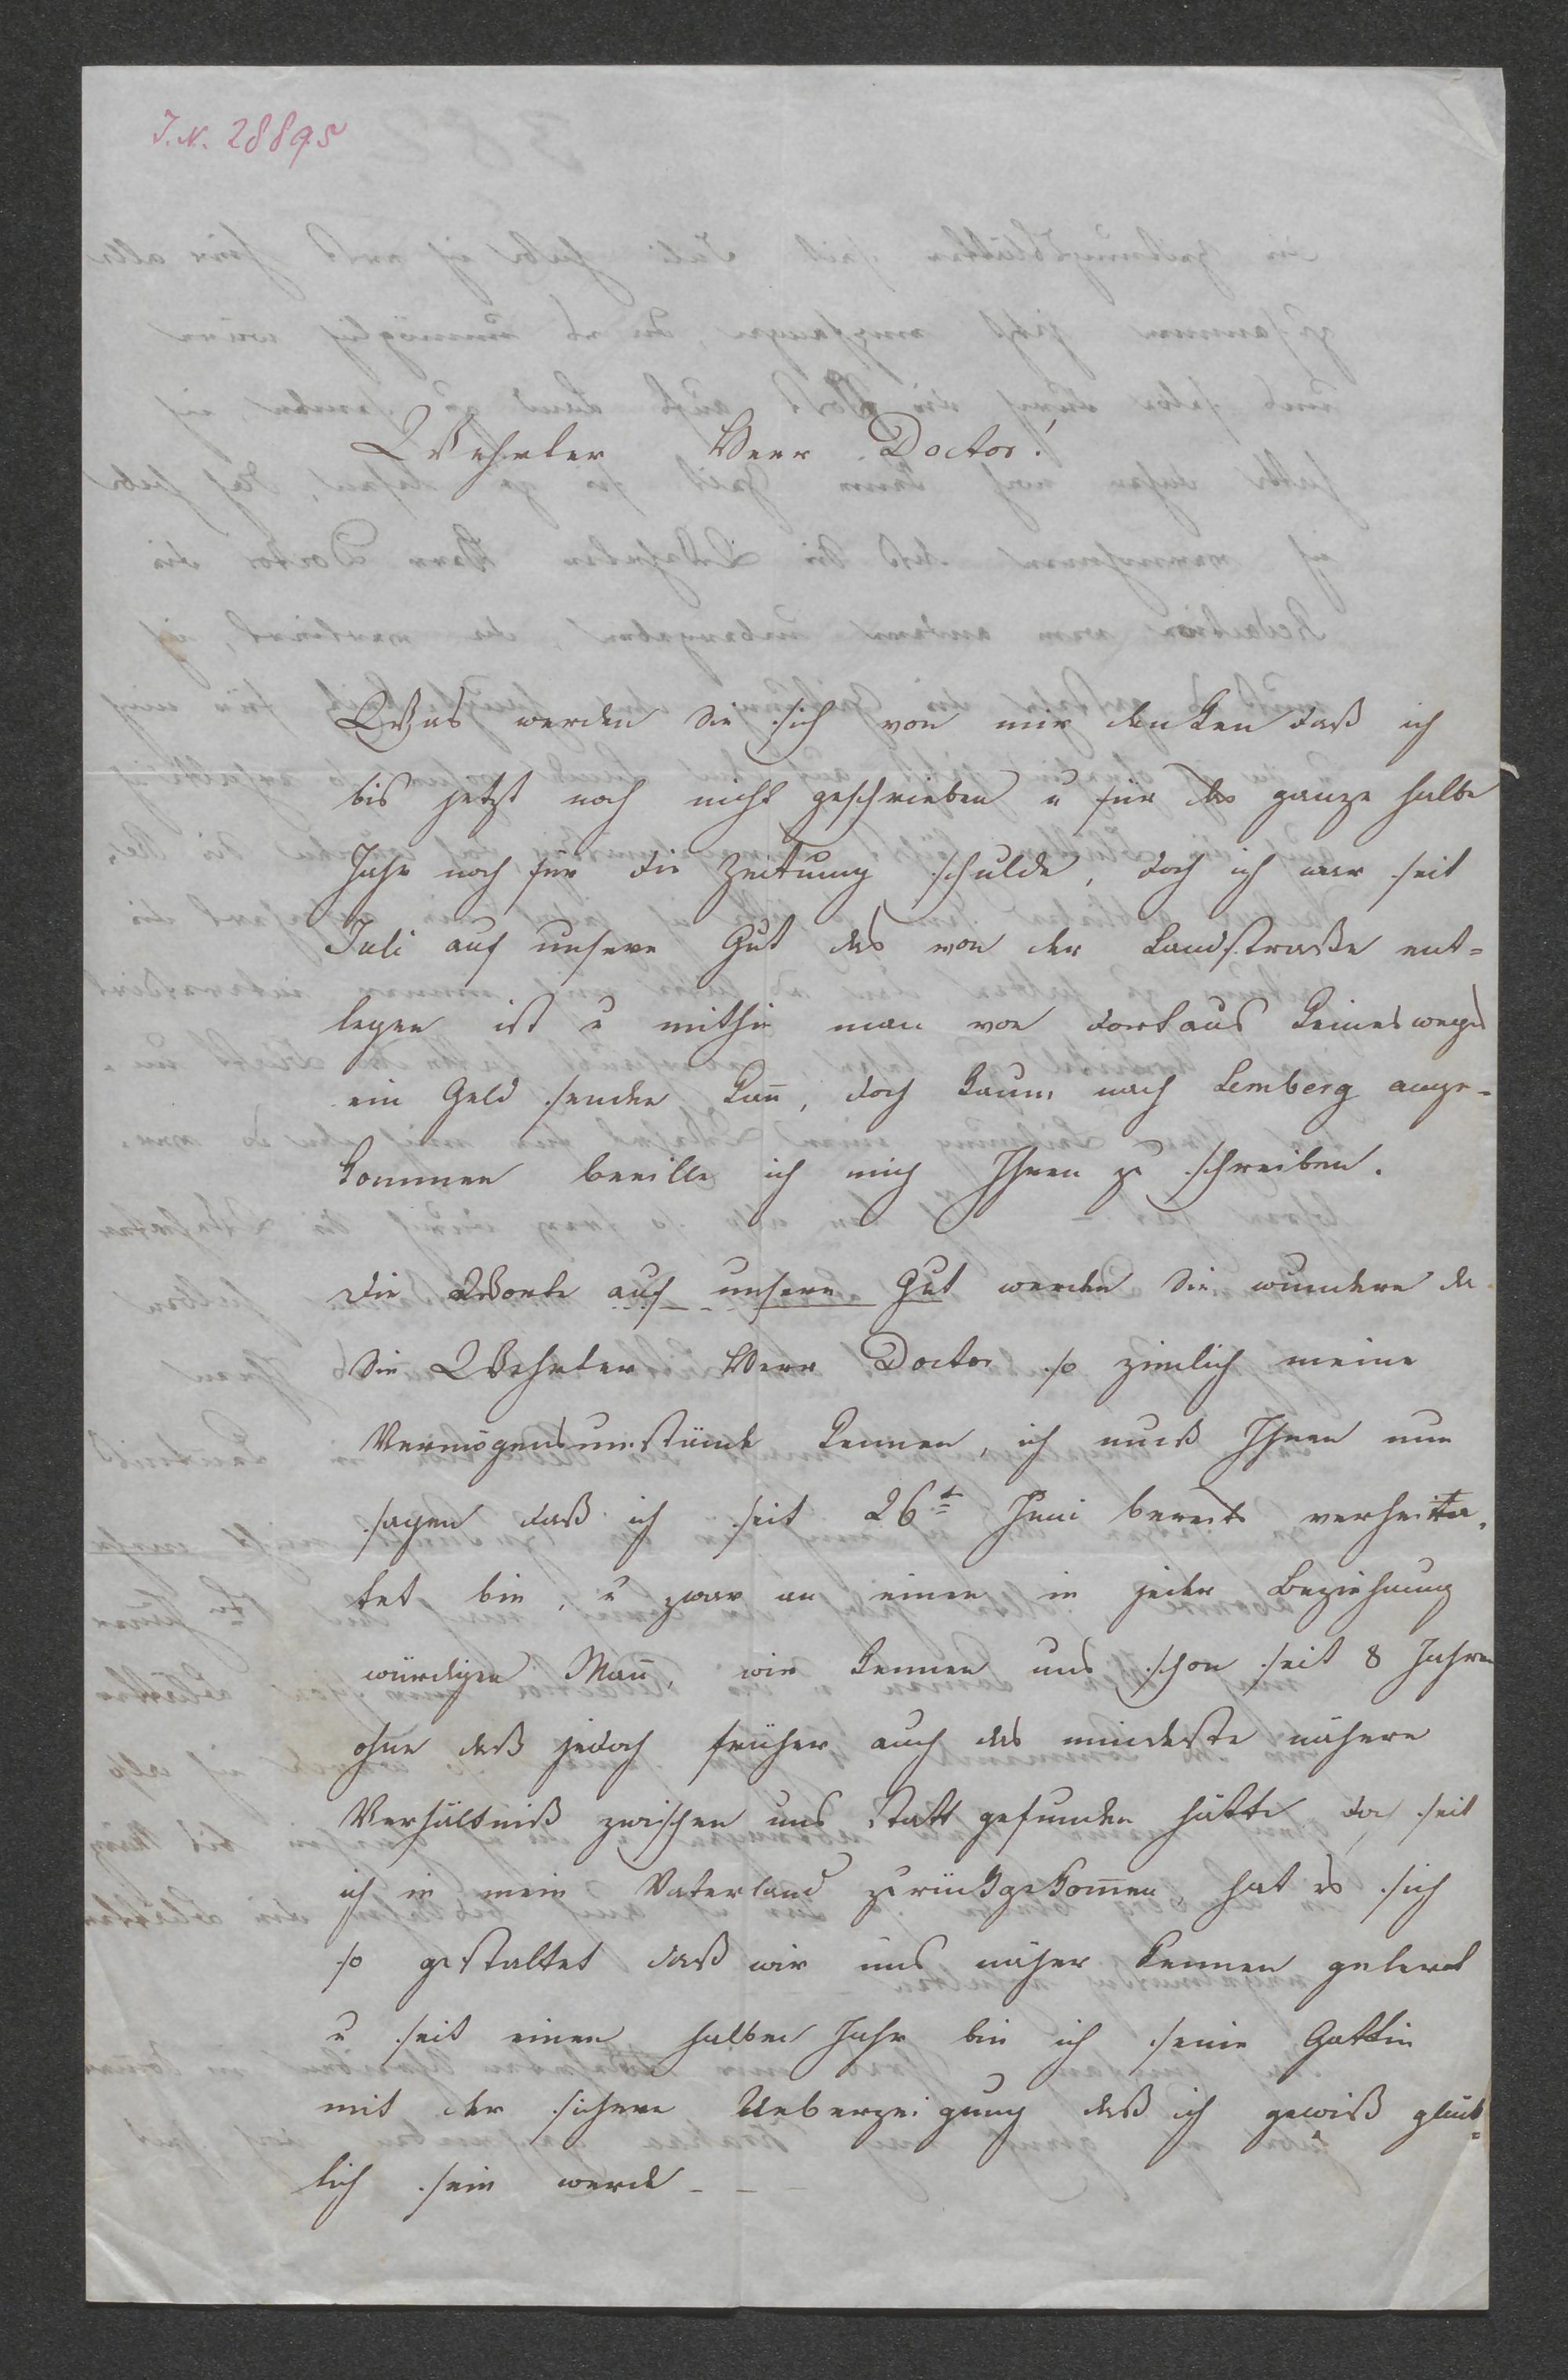 J. N. 28895
Wehrter Herr Doctor!
Was werden Sie sich von mir denken daß ich
bis jetzt noch nicht geschrieben u für das ganze halbe
Jahr noch für die Zeitung schulde, doch ich war seit
Juli auf unsere Gut das von der Landstraße ent=
legen ist u mithin man von dort aus keineswegs
ein Geld senden kan̅, doch kaum nach Lemberg ange=
kommen beeille ich mich Ihnen zu schreiben.
Die Worte auf unsere Gut werden Sie wundern da
Sie Wehrter Herr Doctor so zimlich meine
Vermögensumstände kennen, ich muß Ihnen nun
sagen daß ich seit 26t Juni bereits verheira=
tet bin, u zwar an einen in jeder Beziehung
würdigen Man̅, wir kennen uns schon seit 8 Jahren
ohne daß jedoch früher auch das mindeste nähere
Verhältniß zwischen uns Statt gefunden hätte doch seit
ich in mein Vaterland zurückgekom̅en, hat es sich
so gestaltet daß wir uns näher kennen gelernt
u seit einen halben Jahr bin ich seine Gattin
mit der sichern Ueberzeigung daß ich gewiß glück=
lich sein werde _ _ _